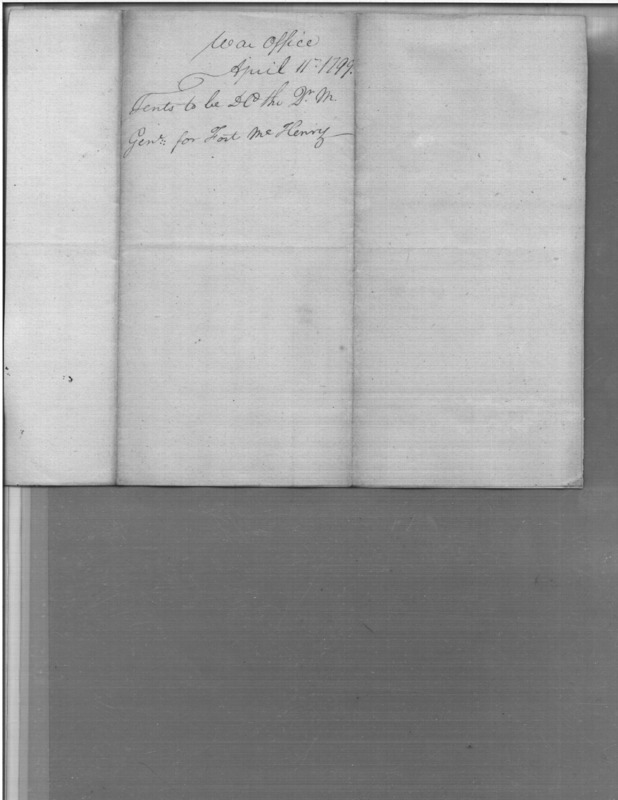 War Office
April 11th 1799.
Tents to be dd the Qr. M
Genl. for Fort Mc Henry